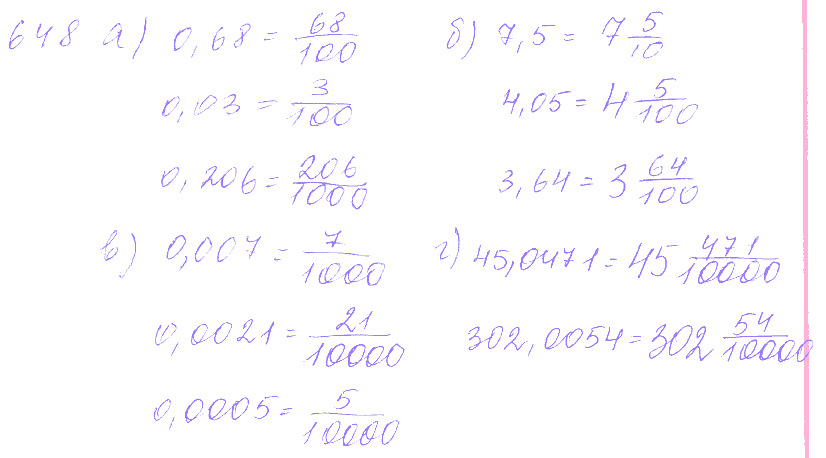 648 а) 0,68 = 68/100 б) 7,5 = 7 5/10
0,03 = 3/100 4,05 = 4 5/100
0,206 = 206/1000 3,64 = 3 64/100
в) 0,007 = 7/1000 г) 45,0471 = 45 471/10000
0,0021 = 21/10000 302,0054 = 302 54/10000
0,0005 = 5/10000